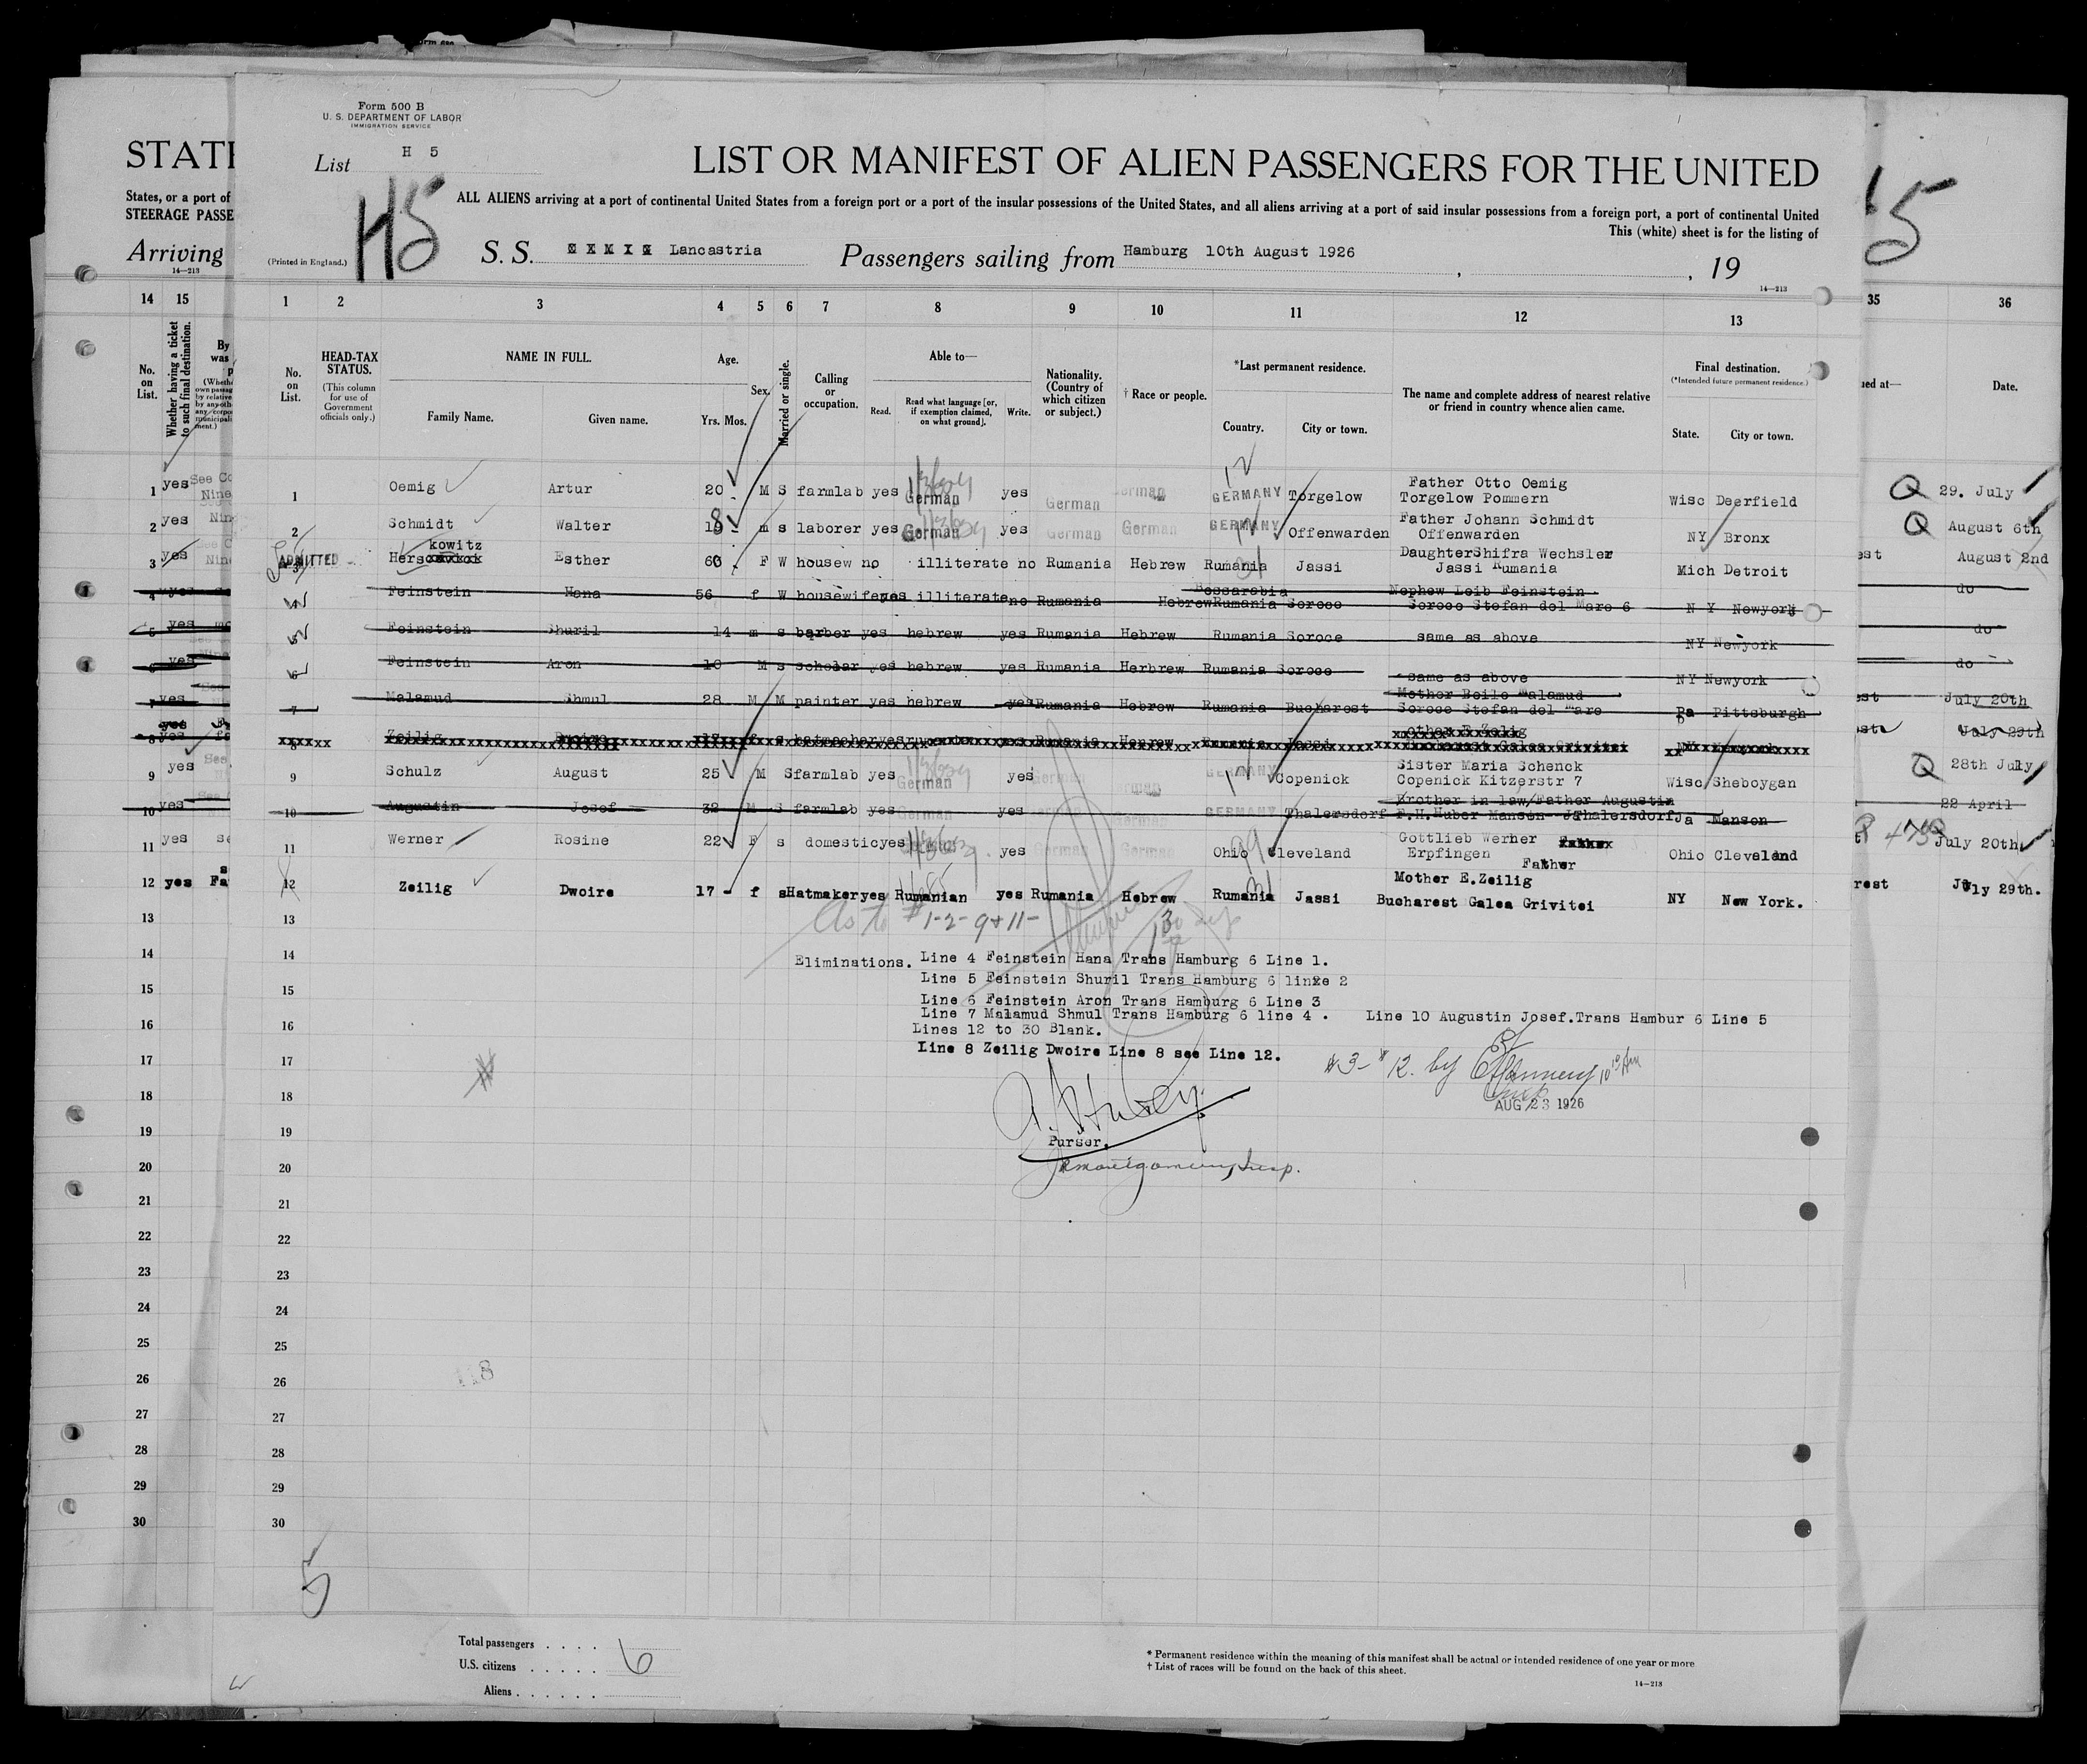 Form 500 B
U. S. DEPARTMENT OF LABOR
IMMIGRATION SERVICE
List H 5
H5
STATE
LIST OR MANIFEST OF ALIEN PASSENGERS FOR THE UNITED
States, or a port of
STEERAGE PASSE
ALL ALIENS arriving at a port of continental United States from a foreign port or a port of the insular possessions of the United States, and all aliens arriving at a port of said insular possessions from a foreign port, a port of continental United
This (white) sheet is for the listing of
Arriving
14—213
(Printed in England.)
S. S. Lancastria Passengers sailing from Hamburg 10th August 1926 , , 19
14—213
5
14 15 1 2 3 4 5 6 7 8 9 10 11 12 13 35 36
No. on List.
Whether having a ticket to such final destination.
By was
No. on List.
HEAD-TAX STATUS.
(This column for use of Government officials only.)
NAME IN FULL.
Family Name. Given name.
Age.
Yrs. Mos.
Sex.
Married or single.
Calling or occupation.
Able to—
Read. Read what language [or, if exemption claimed, on what ground]. Write.
Nationality. (Country of which citizen or subject.)
† Race or people.
*Last permanent residence.
Country. City or town.
The name and complete address of nearest relative or friend in country whence alien came.
Final destination.
(*Intended future permanent residence.)
State. City or town.
ued at—
Date.
1 yes See Co Nine 1 Oemig Artur 20 M S farmlab yes German yes German German GERMANY Torgelow Father Otto Oemig Torgelow Pommern Wisc Deerfield Q 29. July
2 yes Nine 2 Schmidt Walter 18 m s laborer yes German yes German German GERMANY Offenwarden Father Johann Schmidt Offenwarden NY Bronx Q August 6th
3 yes Nine ADMITTED 3 Herscovkowitz Esther 60 F W housew no illiterate no Rumania Hebrew Rumania Jassi Daughter Shifra Wechsler Jassi Rumania Mich Detroit est August 2nd
4 yes 4 Feinstein Hana 56 f W housewife yes illiterate no Rumania Hebrew Bessarabia Rumania Soroce Nephew Leib Feinstein Soroce Stefan del Mare 6 N Y Newyork do
5 yes 5 Feinstein Shuril 14 m s barber yes hebrew yes Rumania Hebrew Rumania Soroce same as above NY Newyork do
6 yes 6 Feinstein Aron 10 M s scholar yes hebrew yes Rumania Herbrew Rumania Soroce same as above NY Newyork do
7 yes 7 Malamud Shmul 28 M M painter yes hebrew yes Rumania Hebrew Rumania Bucharest Mother Beile Malamud Soroce Stefan del Mare Pa Pittsburgh est July 20th
8 yes xxxxx Zeilig Dwoire 17 f s hatmacher yes Rumania Hebrew Rumania Jassi Mother E Zeilig Galea Grivitei NY July 29th
9 yes 9 Schulz August 25 M S farmlab yes German yes German German GERMANY Copenick Sister Maria Schenck Copenick Kitzerstr 7 Wisc Sheboygan Q 28th July
10 yes 10 Augustin Josef 32 M S farmlab yes German yes German German GERMANY Thalersdorf Brother in law/Father Augustin F.H.Huber Manson Thalersdorf Ja Manson 22 April
11 yes 11 Werner Rosine 22 F s domestic yes yes German German Ohio Cleveland Gottlieb Werner Erpfingen Father Ohio Cleveland July 20th
12 yes Fa 12 Zeilig Dwoire 17 - f s Hatmaker yes Rumanian yes Rumania Hebrew Rumania Jassi Mother E.Zeilig Bucharest Galea Grivitei NY New York. rest July 29th.
13 13 As to # 1-2-9+11-
14 14 Eliminations. Line 4 Feinstein Hana Trans Hamburg 6 Line 1.
15 15 Line 5 Feinstein Shuril Trans Hamburg 6 line 2
Line 6 Feinstein Aron Trans Hamburg 6 Line 3
16 16 Line 7 Malamud Shmul Trans Hamburg 6 line 4 . Line 10 Augustin Josef.Trans Hambur 6 Line 5
Lines 12 to 30 Blank.
17 17 Line 8 Zeilig Dwoire Line 8 see Line 12.
#3- #12. by
18 18 AUG 23 1926
19 19 Purser.
20 20 Montgomery Insp.
21 21
22 22
23 23
24 24
25 25
26 26 118
27 27
28 28
29 29
30 30
5
Total passengers . . . . 6
U.S. citizens . . . . .
Aliens . . . . . .
* Permanent residence within the meaning of this manifest shall be actual or intended residence of one year or more
† List of races will be found on the back of this sheet.
14—213